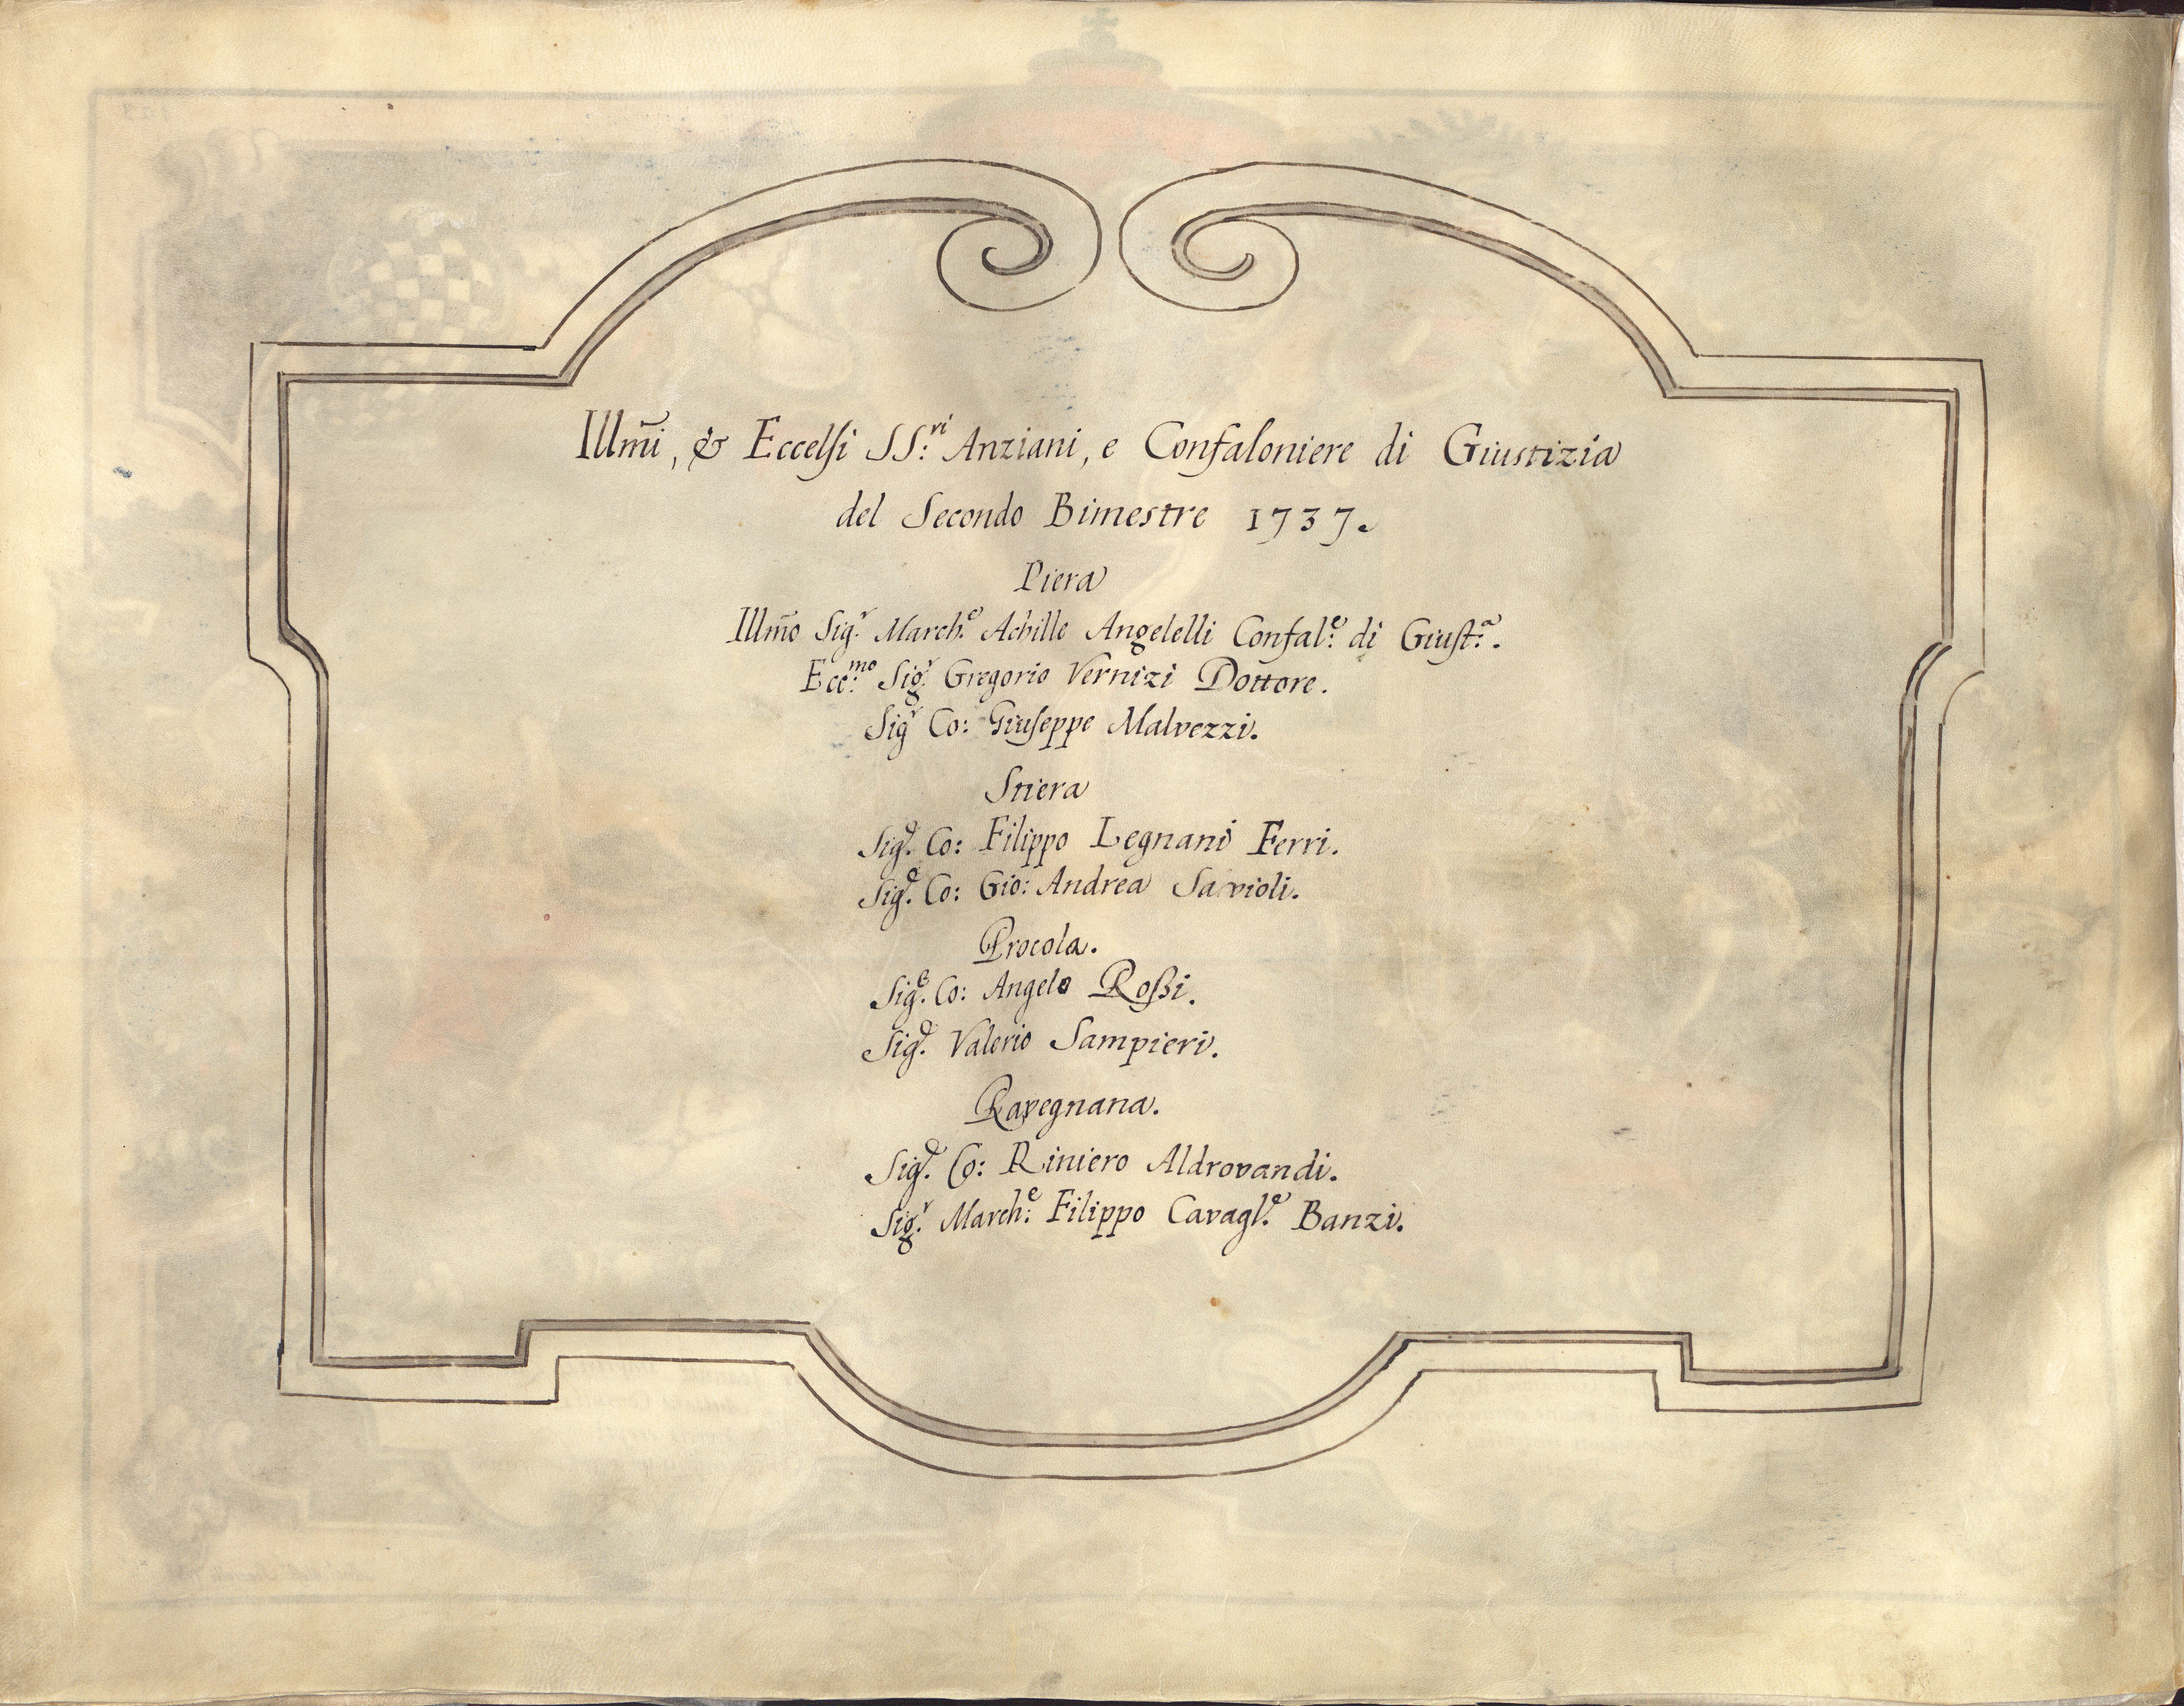 Illm̃i, & Eccelsi SS:ri Anziani, e Confaloniere di Giustizia
del Secondo Bimestre 1737.
Piera
Illm̃o Sig.r March.e Achille Angelelli Confal:e di Giust:a.
Ecc:mo Sig.r Gregorio Vernizi Dottore.
Sig.r Co: Giuseppe Malvezzi.
Stiera
Sig.e Co: Filippo Legnani Ferri.
Sig.e Co: Gio: Andrea Savioli.
Procola.
Sig.e Co: Angelo Roßi.
Sig.e Valerio Sampieri.
Ravegnana.
Sig.e Co: Riniero Aldrovandi.
Sig.r March:e Filippo Cavagl.e Banzi.